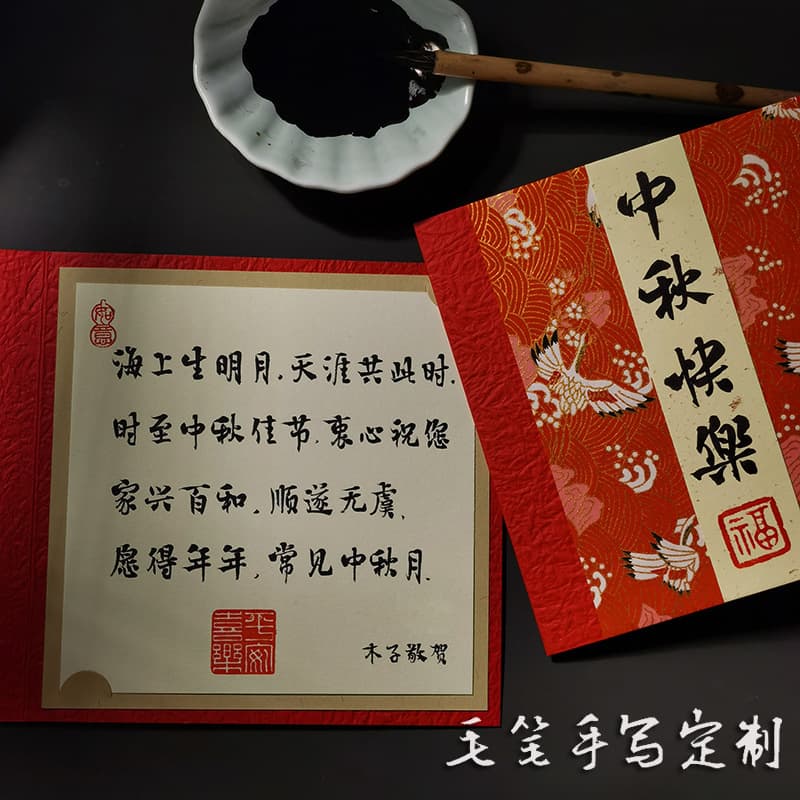 如意
海上生明月.天涯共此时.
时至中秋佳节.衷心祝您
家兴百和.顺遂无虞.
愿得年年,常见中秋月.
平安喜樂
木子敬贺
中秋快樂
福
毛笔手写定制